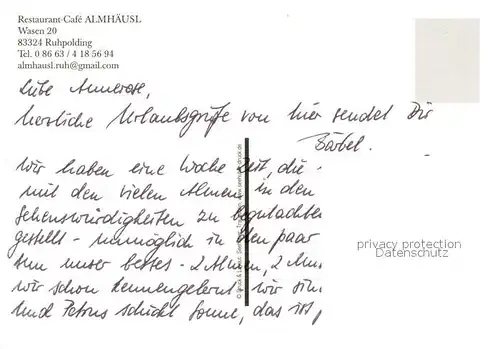 Restaurant-Café ALMHÄUSL
Wasen 20
83324 Ruhpolding
Tel. 0 86 63 / 4 18 56 94
almhausl.ruh@gmail.com
Liebe Annerose,
herzliche Urlaubsgrüße von hier sendet Dir
Bärbel.
Wir haben eine Woche Zeit, die
mit den vielen Almen in den
Sehenswürdigkeiten zu begutachten
gestellt - unmöglich in den paar
tun unser bestes - 2 Almen, 2
wir schon kennengelernt wir sin
Und Petrus schickt Sonne, das ist
privacy protection
Datenschutz